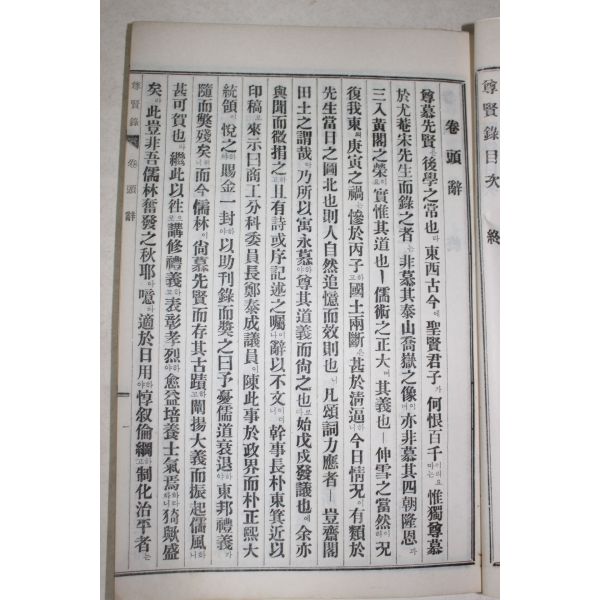 尊賢錄目次 終
卷頭辭
尊慕先賢는 後學之常也라 東西古今에 聖賢君子가 何恨百千이리요마는 惟獨尊慕
於尤菴宋先生而錄之者는 非慕其泰山喬嶽之像이며 亦非慕其四朝隆恩과
三入黃閣之榮이요 實惟其道也ㅣ 儒術之正大며 其義也ㅣ 伸雪之當然이라 况
復我東의 庚寅之禍는 慘於丙子하고 國土兩斷은 甚於淸逼하니 今日情况이 有類於
先生當日之圖北也則人自然追憶而效則也니 凡頌詞力應者ㅣ 豈齋閣
田土之謂哉아 乃所以寓永慕하야 尊其道義而尙之也로다 始戊戌發議也에 余亦
與聞而微捐之하고 且有詩或序記述之囑이나 辭以不文이러니 幹事長朴東箕近以
印稿로 來示曰商工分科委員長鄭泰成議員이 陳此事於政界而朴正熙大
統領이 悅之하사 賜金一封하야 以助刊錄而奬之曰予憂儒道衰退하야 東邦禮義가
隨而斁殘矣러니 而今儒林이 尙慕先賢而存其古蹟하고 闡揚大義而振起儒風하니
甚可賀也라 繼此以往으로 講修禮義하고 表彰孝烈하야 愈益培養士氣焉하라하니 猗歟盛
矣라 此豈非吾儒林奮發之秋耶아 噫라 適於日用하야 惇叙倫綱하고 制化治平者는
尊賢錄 卷頭辭 一